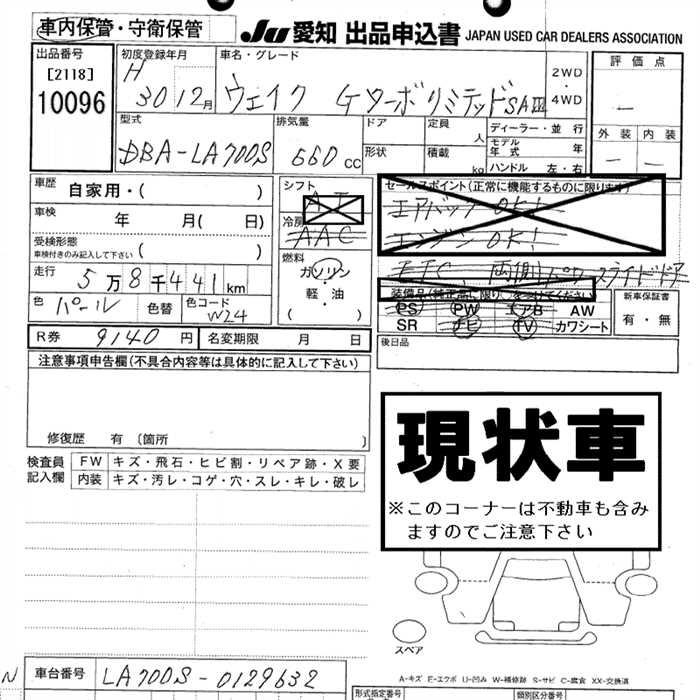 車内保管・守衛保管
JU 愛知 出品申込書 JAPAN USED CAR DEALERS ASSOCIATION
出品番号
[2118]
10096
初度登録年月
H 30 12月
車名・グレード
ウェイク Gターボリミテッド SAⅢ
2WD
・
4WD
評価点
—
外装 内装
— —
型式
DBA-LA700S
排気量
660 CC
ドア
形状
定員 人
積載 kg
ディーラー・並行
モデル年式 年
ハンドル 左・右
車歴 自家用・( )
車検 年 月( 日)
受検形態
車検付きのみ記入して下さい ( )
走行 5万8千441km
色 パール 色替 色コード W24
シフト
冷房 AAC
燃料
ガソリン
・
軽・油
( )
セールスポイント(正常に機能するものに限ります)
エアバックOK!
エンジンOK!
ETC、両側パワースライドドア
PS PW エアB AW
SR ナビ TV カワシート
新車保証書
有・無
R券 9140円 名変期限 月 日
後日品
注意事項申告欄(不具合内容等は具体的に記入して下さい)
修復歴 有 〔箇所 〕
検査員記入欄
FW キズ・飛石・ヒビ割・リペア跡・X要
内装 キズ・汚レ・コゲ・穴・スレ・キレ・破レ
現状車
※このコーナーは不動車も含み
ますのでご注意下さい
スペア
A-キズ E-エクボ U-凹み W-補修跡 S-サビ C-腐食 XX-交換済
N
車台番号 LA700S-0129632
型式指定番号
類別区分番号